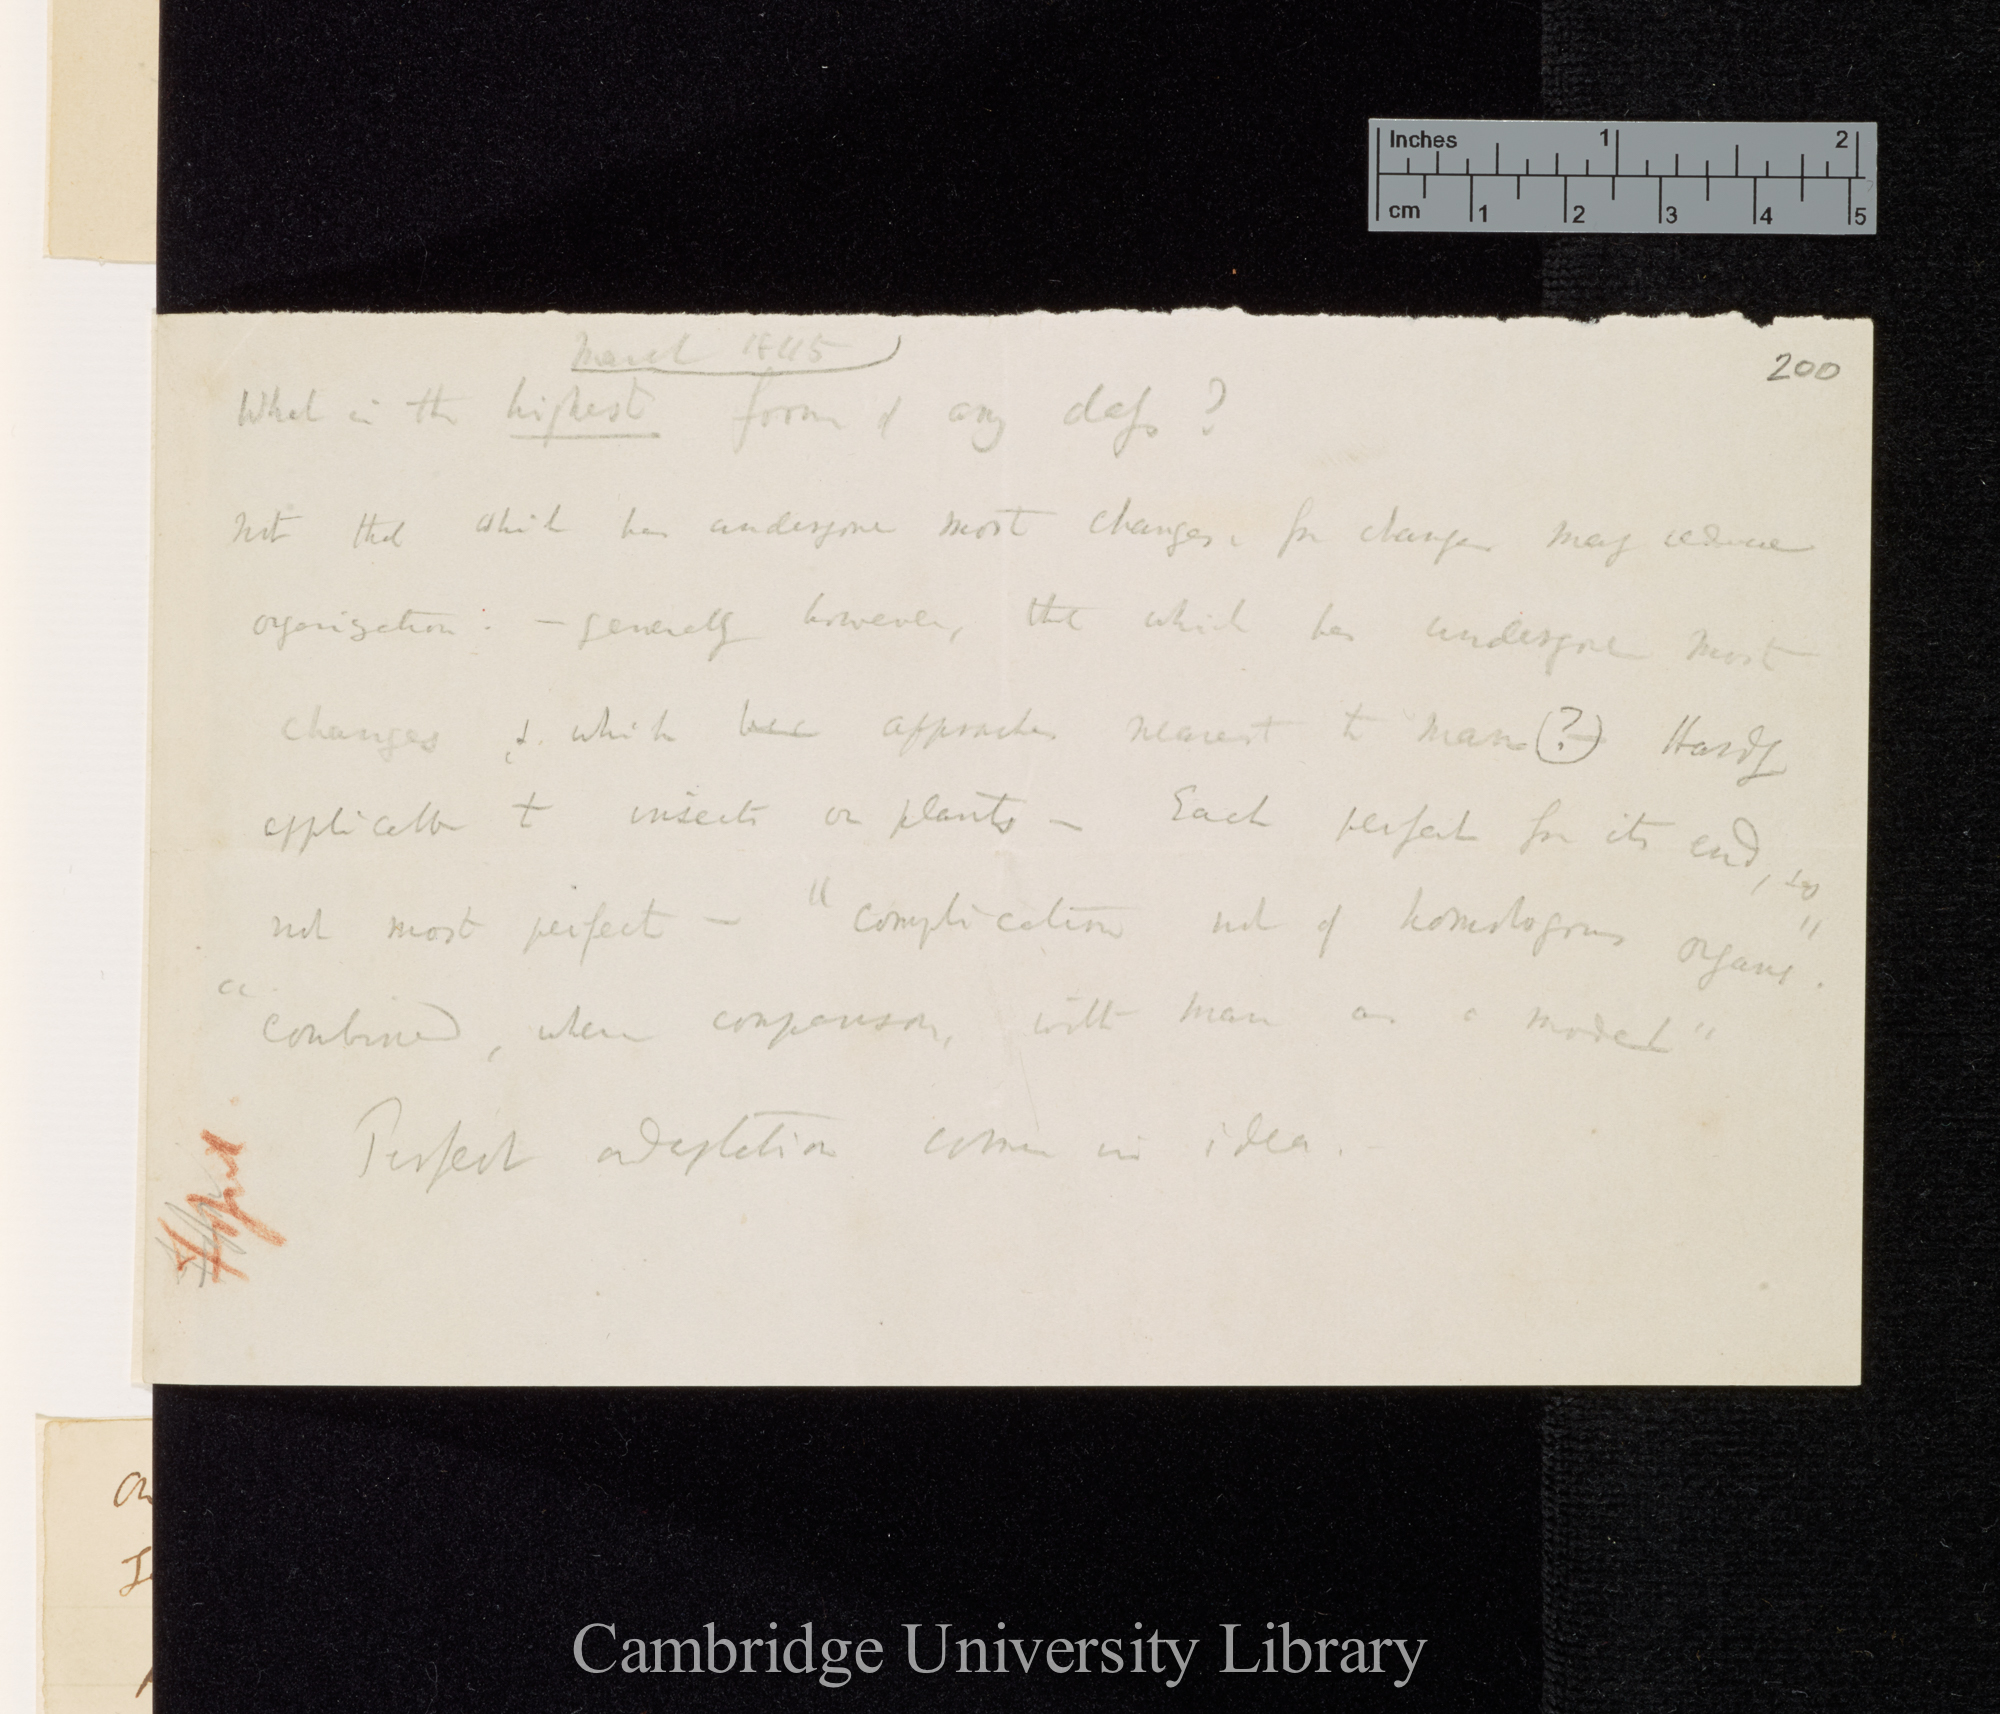 Inches 1 2
cm 1 2 3 4 5
200
March 1845
What is the highest form of any class?
Not that which has undergone most changes, for changes may reduce
organisation: — generally however, that which has undergone most
changes & which approaches nearest to man (?) Hardly
applicable to insects or plants — Each perfect for its end,
not most perfect — "complication not of homologous organs".
"combined, when comparison, with man as a model"
Perfect adaptation comes in idea. —
Cambridge University Library